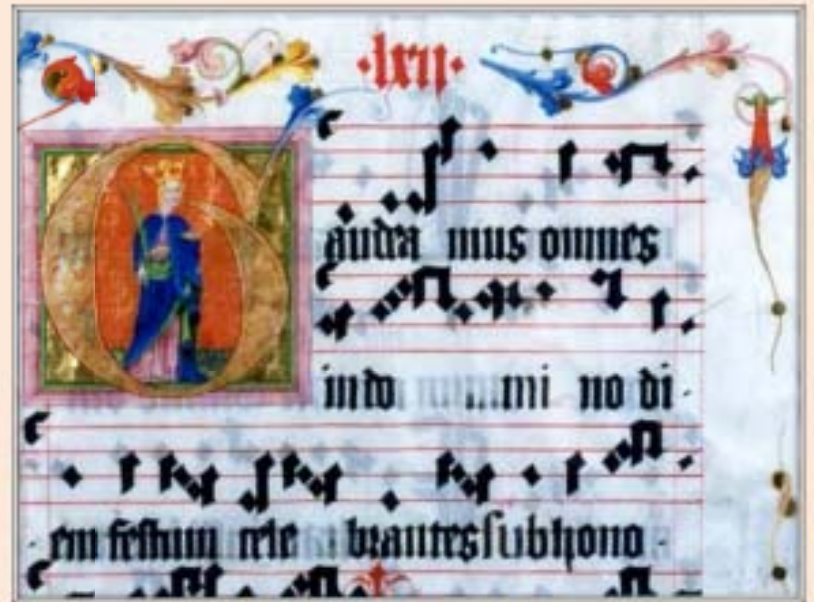 ·lxii·
Gaudea mus omnes
in do mi no di
em festum cele brantes sub hono